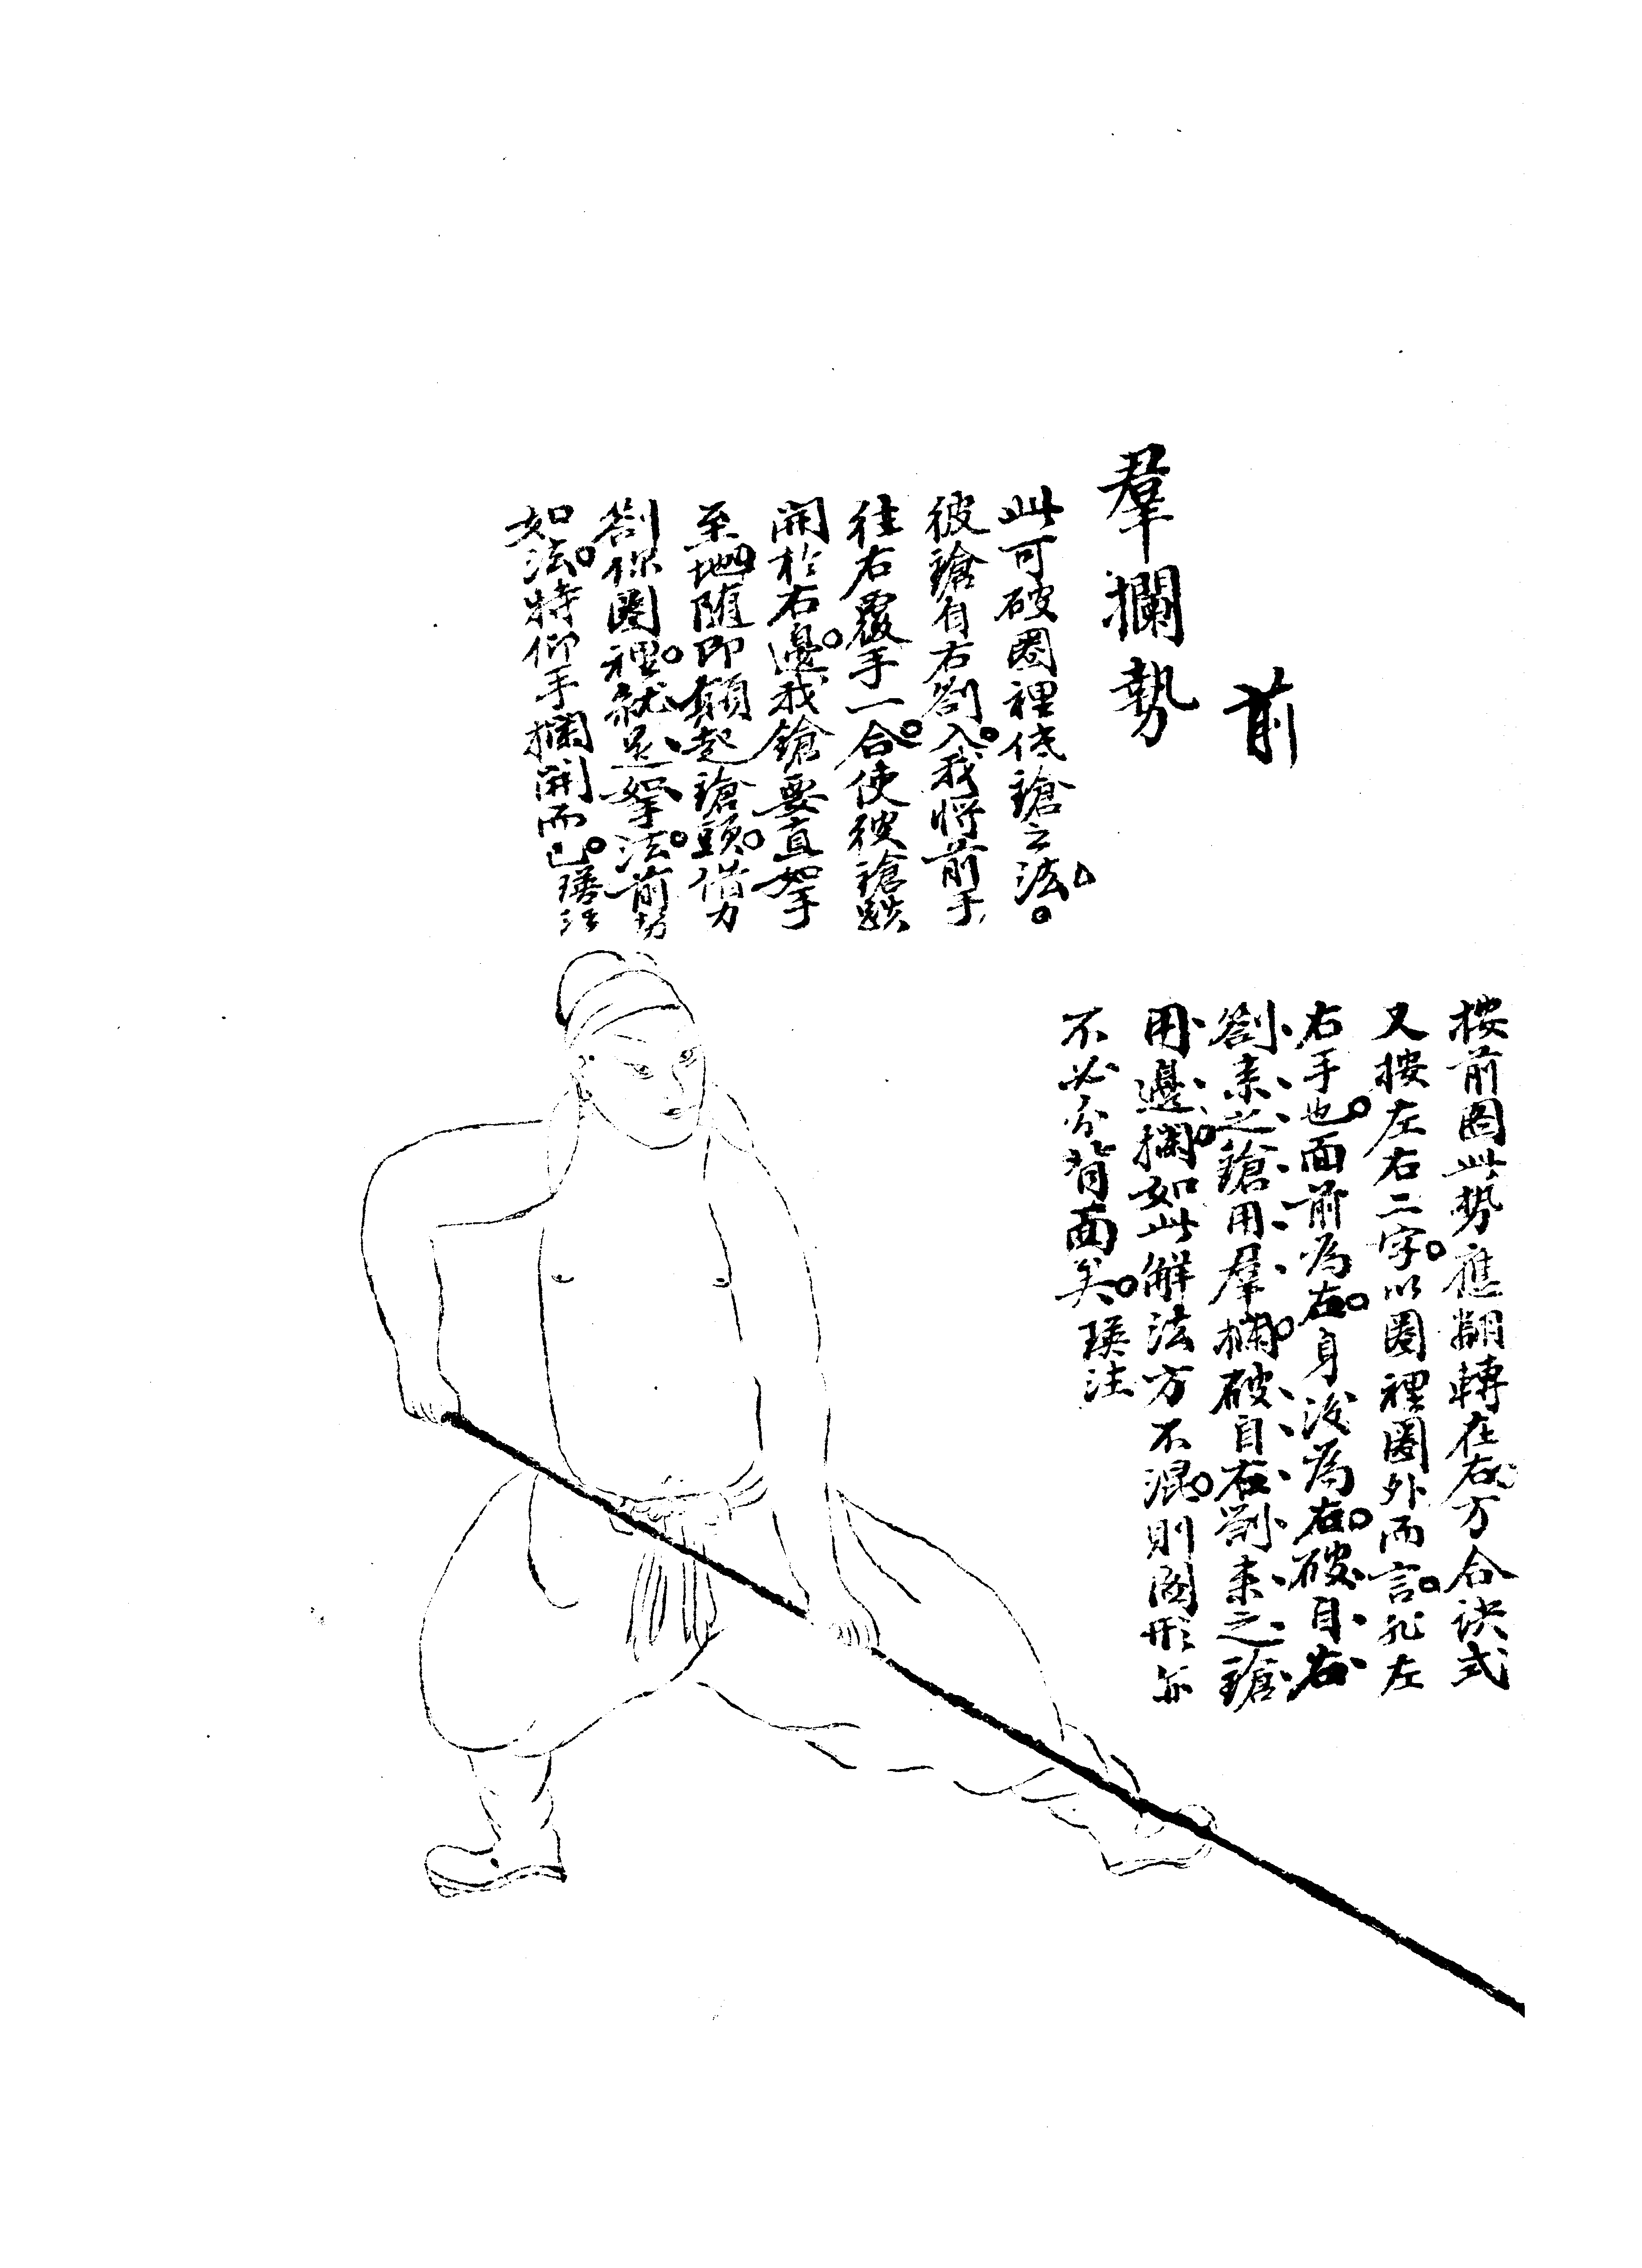 前
羣攔勢
此可破圈裡低鎗之法
彼鎗自右劄入我將前手
往右覆手一合使彼鎗跌
開於右邊我鎗要直拏手
至地随即顛起鎗頭借力
劄你圈裡就是拏法前勢
如法特仰手攔開而已 注
按前圖此勢應翻轉在右方合訣式
又按左右二字以圈裡圈外而言非左
右手也面前為左身後為右破自右
劄來之鎗用羣攔破自右劄來之鎗
用邊攔如此解法方不混則圖形亦
不必分背面矣 瑛注